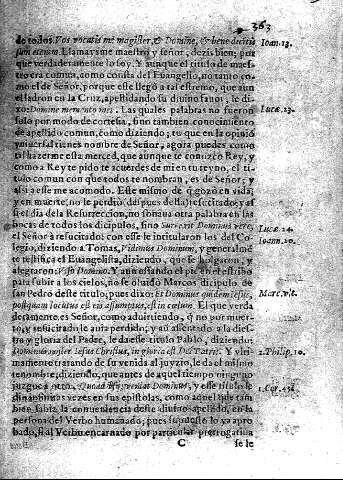 363
de todos. Vos vocatis me magister, & Domine, & bene dicitis
sum etenim. Llamaysme maestro y señor, dezis bien; por
que verdaderamente lo soy. Y aunque el titulo de maes-
tro era comun, como consta del Euangelio, no tanto co-
mo el de Señor, porque este llegó a tal estremo, que aun
el ladron en la Cruz, apellidando su diuino fauor, le di-
xo: Domine memento mei. Las quales palabras no fueron
solo por modo de cortesia, sino tambien conocimiento
de apellido comun, como diziendo; tu que en la opinió
vniuersal tienes nombre de Señor, agora puedes como
tal hazerme esta merced, que aunque te conozco Rey, y
como a Rey te pido te acuerdes de mi en tu reyno, el ti-
tulo comun con que todos te nombran, es de Señor; y
assi a esse me acomodo. Este mismo de q̃ gozó en vida;
y en muerte, no le perdió, despues de resuscitado; y assi
el dia de la Resurreccion, no sonaua otra palabra en las
bocas de todos los dicipulos, sino Surrexit Dominus vere,
el Señor a resucitado: con esse le intitularon los del Co-
legio, diziendo a Tomas, Vidimus Dominum, y generalmé
te testifica el Euangelista, diziendo, que se holgaron, y
alegraron: Viso Domino. Y aun estando el pie en el estribo
para subir a los cielos, no se oluidó Marcos dicipulo de
san Pedro deste titulo; pues dixo: Et Dominus quidem Iesus,
postquam locutus est eis assumptus, est in cœlum. El que verda
deramente es Señor, como aduirtiendo, q̃ no por muer-
to, y resucitado le auia perdido; y assi assentado a la dies-
tra y gloria del Padre, le da este titulo Pablo, diziendo:
Dominus noster Iesus Christus, in gloria est Dei Patris. Y vlti-
mamente tratando de su venida al juyzio, le da el mismo
renombre; diziendo, que antes de aquel tiempo ninguno
juzgue a otro. Quoad usq; veniat Dominus, y este titulo le
dan infinitas vezes en sus epistolas, como aquel que tam
bien sabia la conueniencia deste diuino apellido, en la
persona del Verbo humanado; pues supuesto lo ya apro
bado, si al Verbo encarnado por particular prerrogatiua
C se le
Ioan. 13.
Lucæ. 23.
Lucæ 24.
Ioann. 20.
Marc. vlt.
2. Philip. 10.
1. Cor. 4.